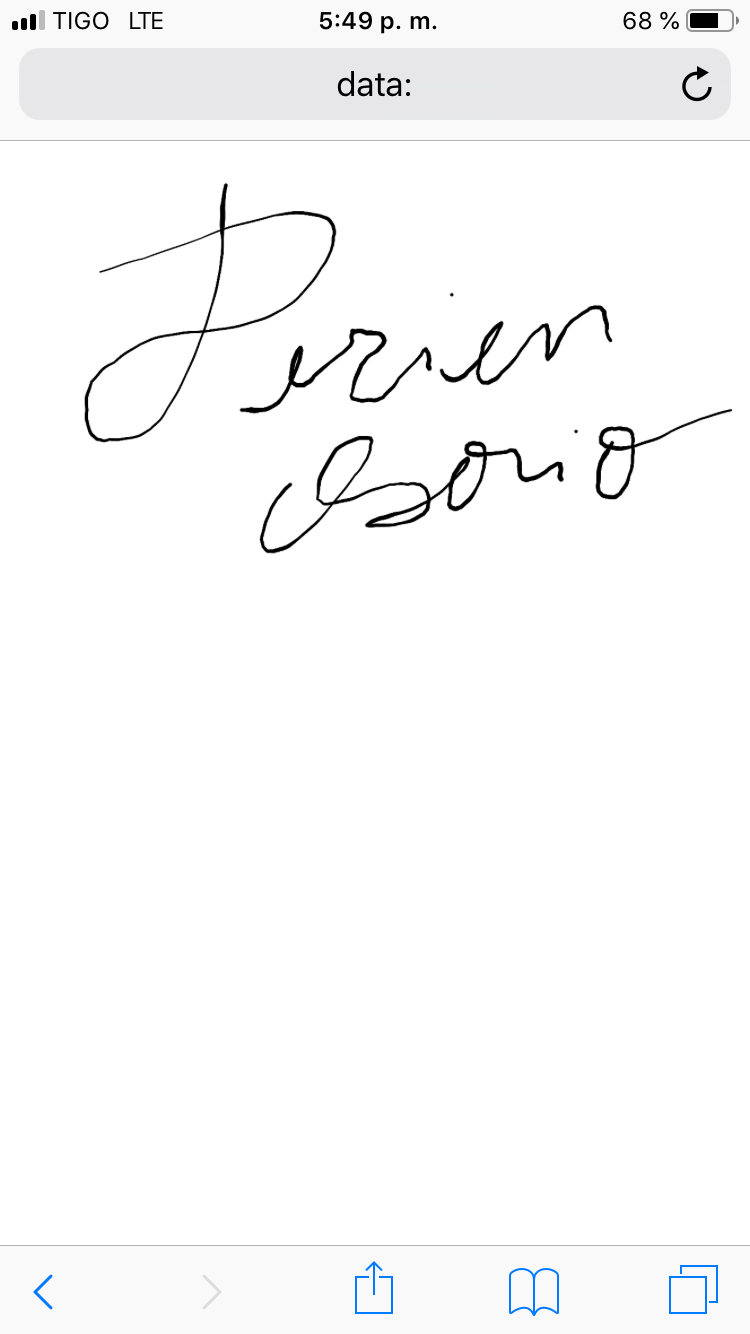 TIGO LTE 5:49 p. m. 68 %
data:
Perien
Osorio